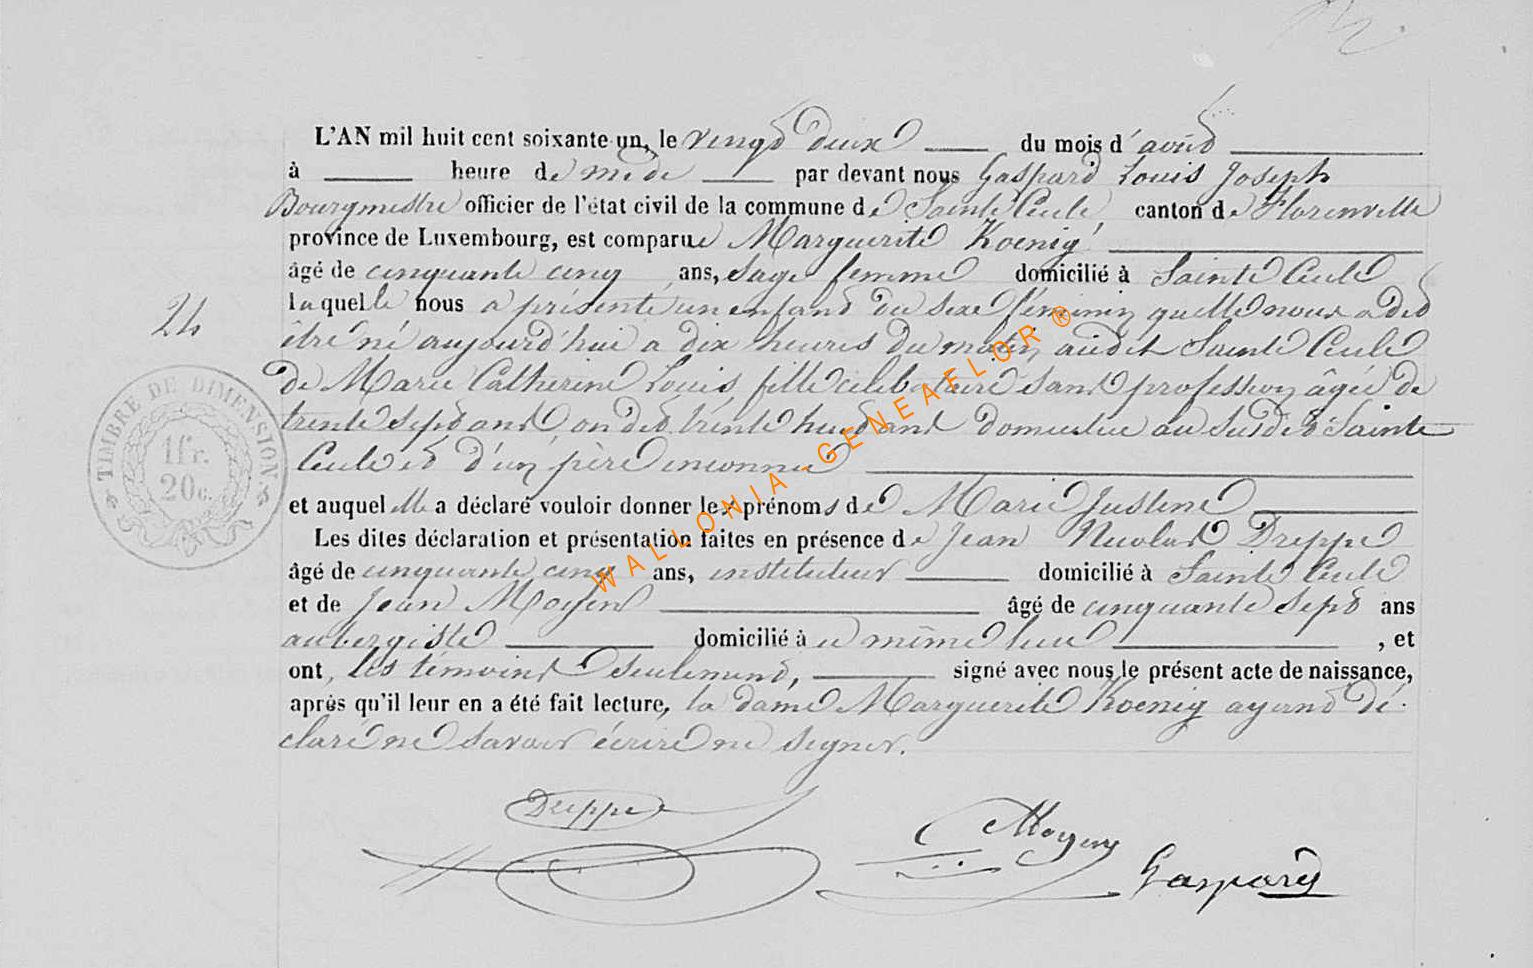 L'AN mil huit cent soixante un, le vingt deux du mois d'août
à heure de midi par devant nous Gaspard Louis Joseph
Bourgmestre officier de l'état civil de la commune de Sainte Cécile canton de Florenville
province de Luxembourg, est comparue Marguerite Koenig
âgé de cinquante cinq ans, sage femme domicilié à Sainte Cécile
laquelle nous a présenté un enfant du sexe féminin quelle nous a dit
24
être né aujourd'hui a dix heures du matin audit Sainte Cécile
de Marie Catherine Louis fille célibataire sans profession âgée de
trente sept ans, on dit trente huit ans domiciliée au susdit Sainte
Cécile et d'un père inconnu
TIMBRE DE DIMENSION.
1fr.
20c.
et auquel elle a déclaré vouloir donner les prénoms de Marie Justine
Les dites déclaration et présentation faites en présence de Jean Nicolas Dreppe
âgé de cinquante cinq ans, instituteur domicilié à Sainte Cécile
et de Jean Moyen âgé de cinquante sept ans
aubergiste domicilié à ce même lieu , et
ont, les témoins seulement, signé avec nous le présent acte de naissance,
après qu'il leur en a été fait lecture, la dame Marguerite Koenig ayant dé
claré ne savoir écrire ne signer.
Dreppe
Moyen
Gaspard
WALLONIA - GENEAFLOR ®